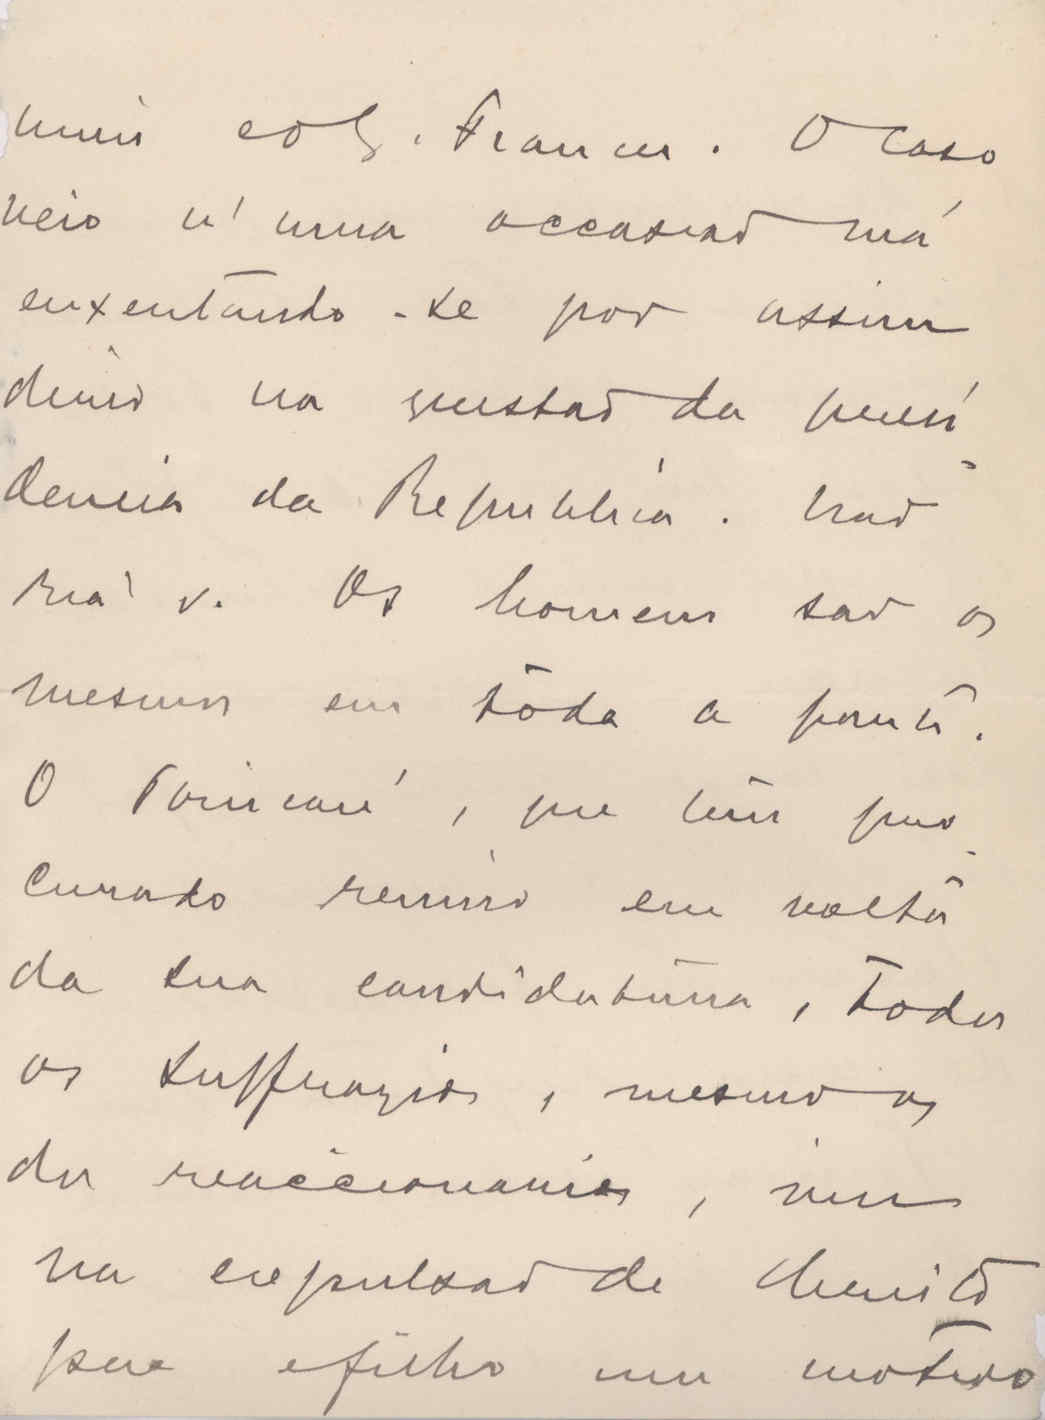 França. O caso
veio n'uma occasião má
enxertando-se por assim
dizer na questão da presi-
dencia da Republica. Não
ria v. Os homens são os
mesmos em toda a parte.
O Poincaré, que tem pro-
curado reunir em volta
da sua candidatura, todos
os suffragios, mesmo os
dos reaccionarios, viu
na expulsão de
 e filho um motivo